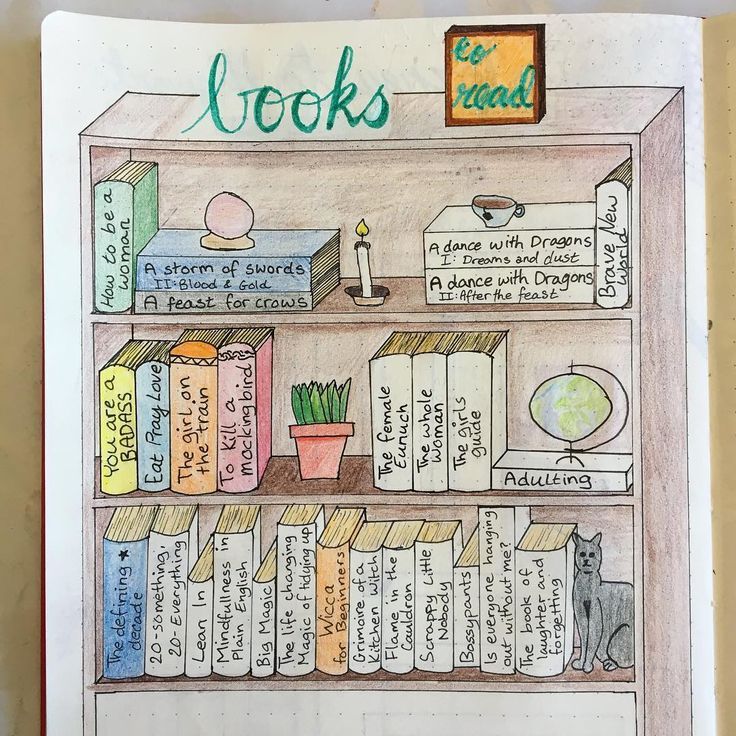 books
to
read
How to be a
woman
A storm of swords
II: Blood & Gold
A feast for crows
A dance with Dragons
I: Dreams and dust
A dance with Dragons
II: After the feast
Brave New
World
You are a
BADASS
Eat Pray Love
The girl on
the train
To Kill a
mockingbird
The female
Eunuch
The whole
Woman
The girls
guide
Adulting
The defining
decade
20-something,
20-Everything
Lean In
Mindfullness in
Plain English
Big Magic
The life changing
Magic of tidying up
Wicca
for Beginners
Grimoire of a
Kitchen Witch
Flame in the
Cauldron
Scrappy Little
Nobody
Bossypants
Is everyone hanging
out without me?
The book of
laughter and
forgetting